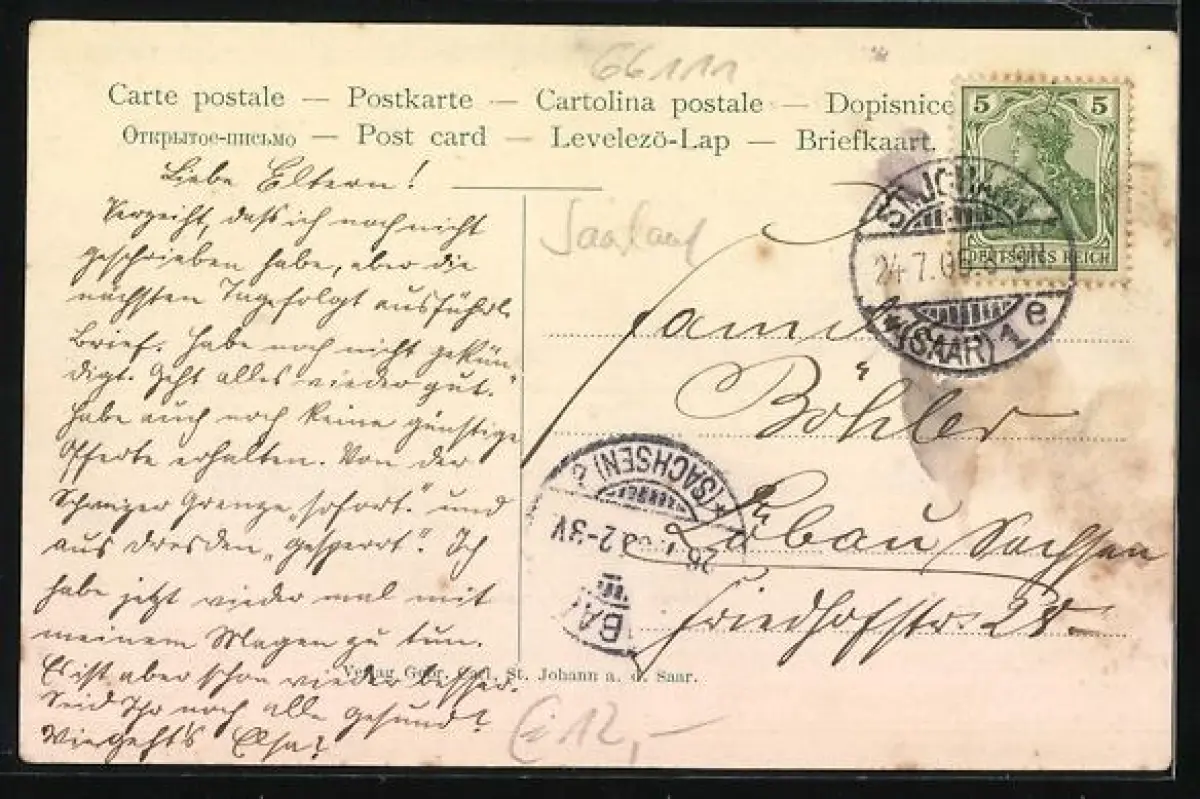 66111
Carte postale — Postkarte — Cartolina postale — Dopisnice
Открытое-письмо — Post card — Levelező-Lap — Briefkaart.
5 5
DEUTSCHES REICH
ST. JOHANN
24.7.09. 8-9N.
*(SAAR) 1 e
Liebe Eltern!
Verzeiht, dass ich noch nicht
geschrieben habe, aber die
nächsten Tage folgt ausführl.
Brief. Habe noch nicht gekün-
digt. Geht alles wieder gut.
Habe auch noch keine günstige
Offerte erhalten. Von der
Schweizer Grenze „sofort" und
aus Dresden „gesperrt". Ich
habe jetzt wieder mal mit
meinem Magen zu tun.
Es ist aber schon wieder besser.
Seid Ihr noch alle gesund?
Wie geht's Elsa?
Saarlauf
Famil
Böhler
Löbau Sachsen
Friedhofstr. 28
*(SACHSEN) c
2-3V
Verlag Gebr. Carl, St. Johann a. d. Saar.
12,-